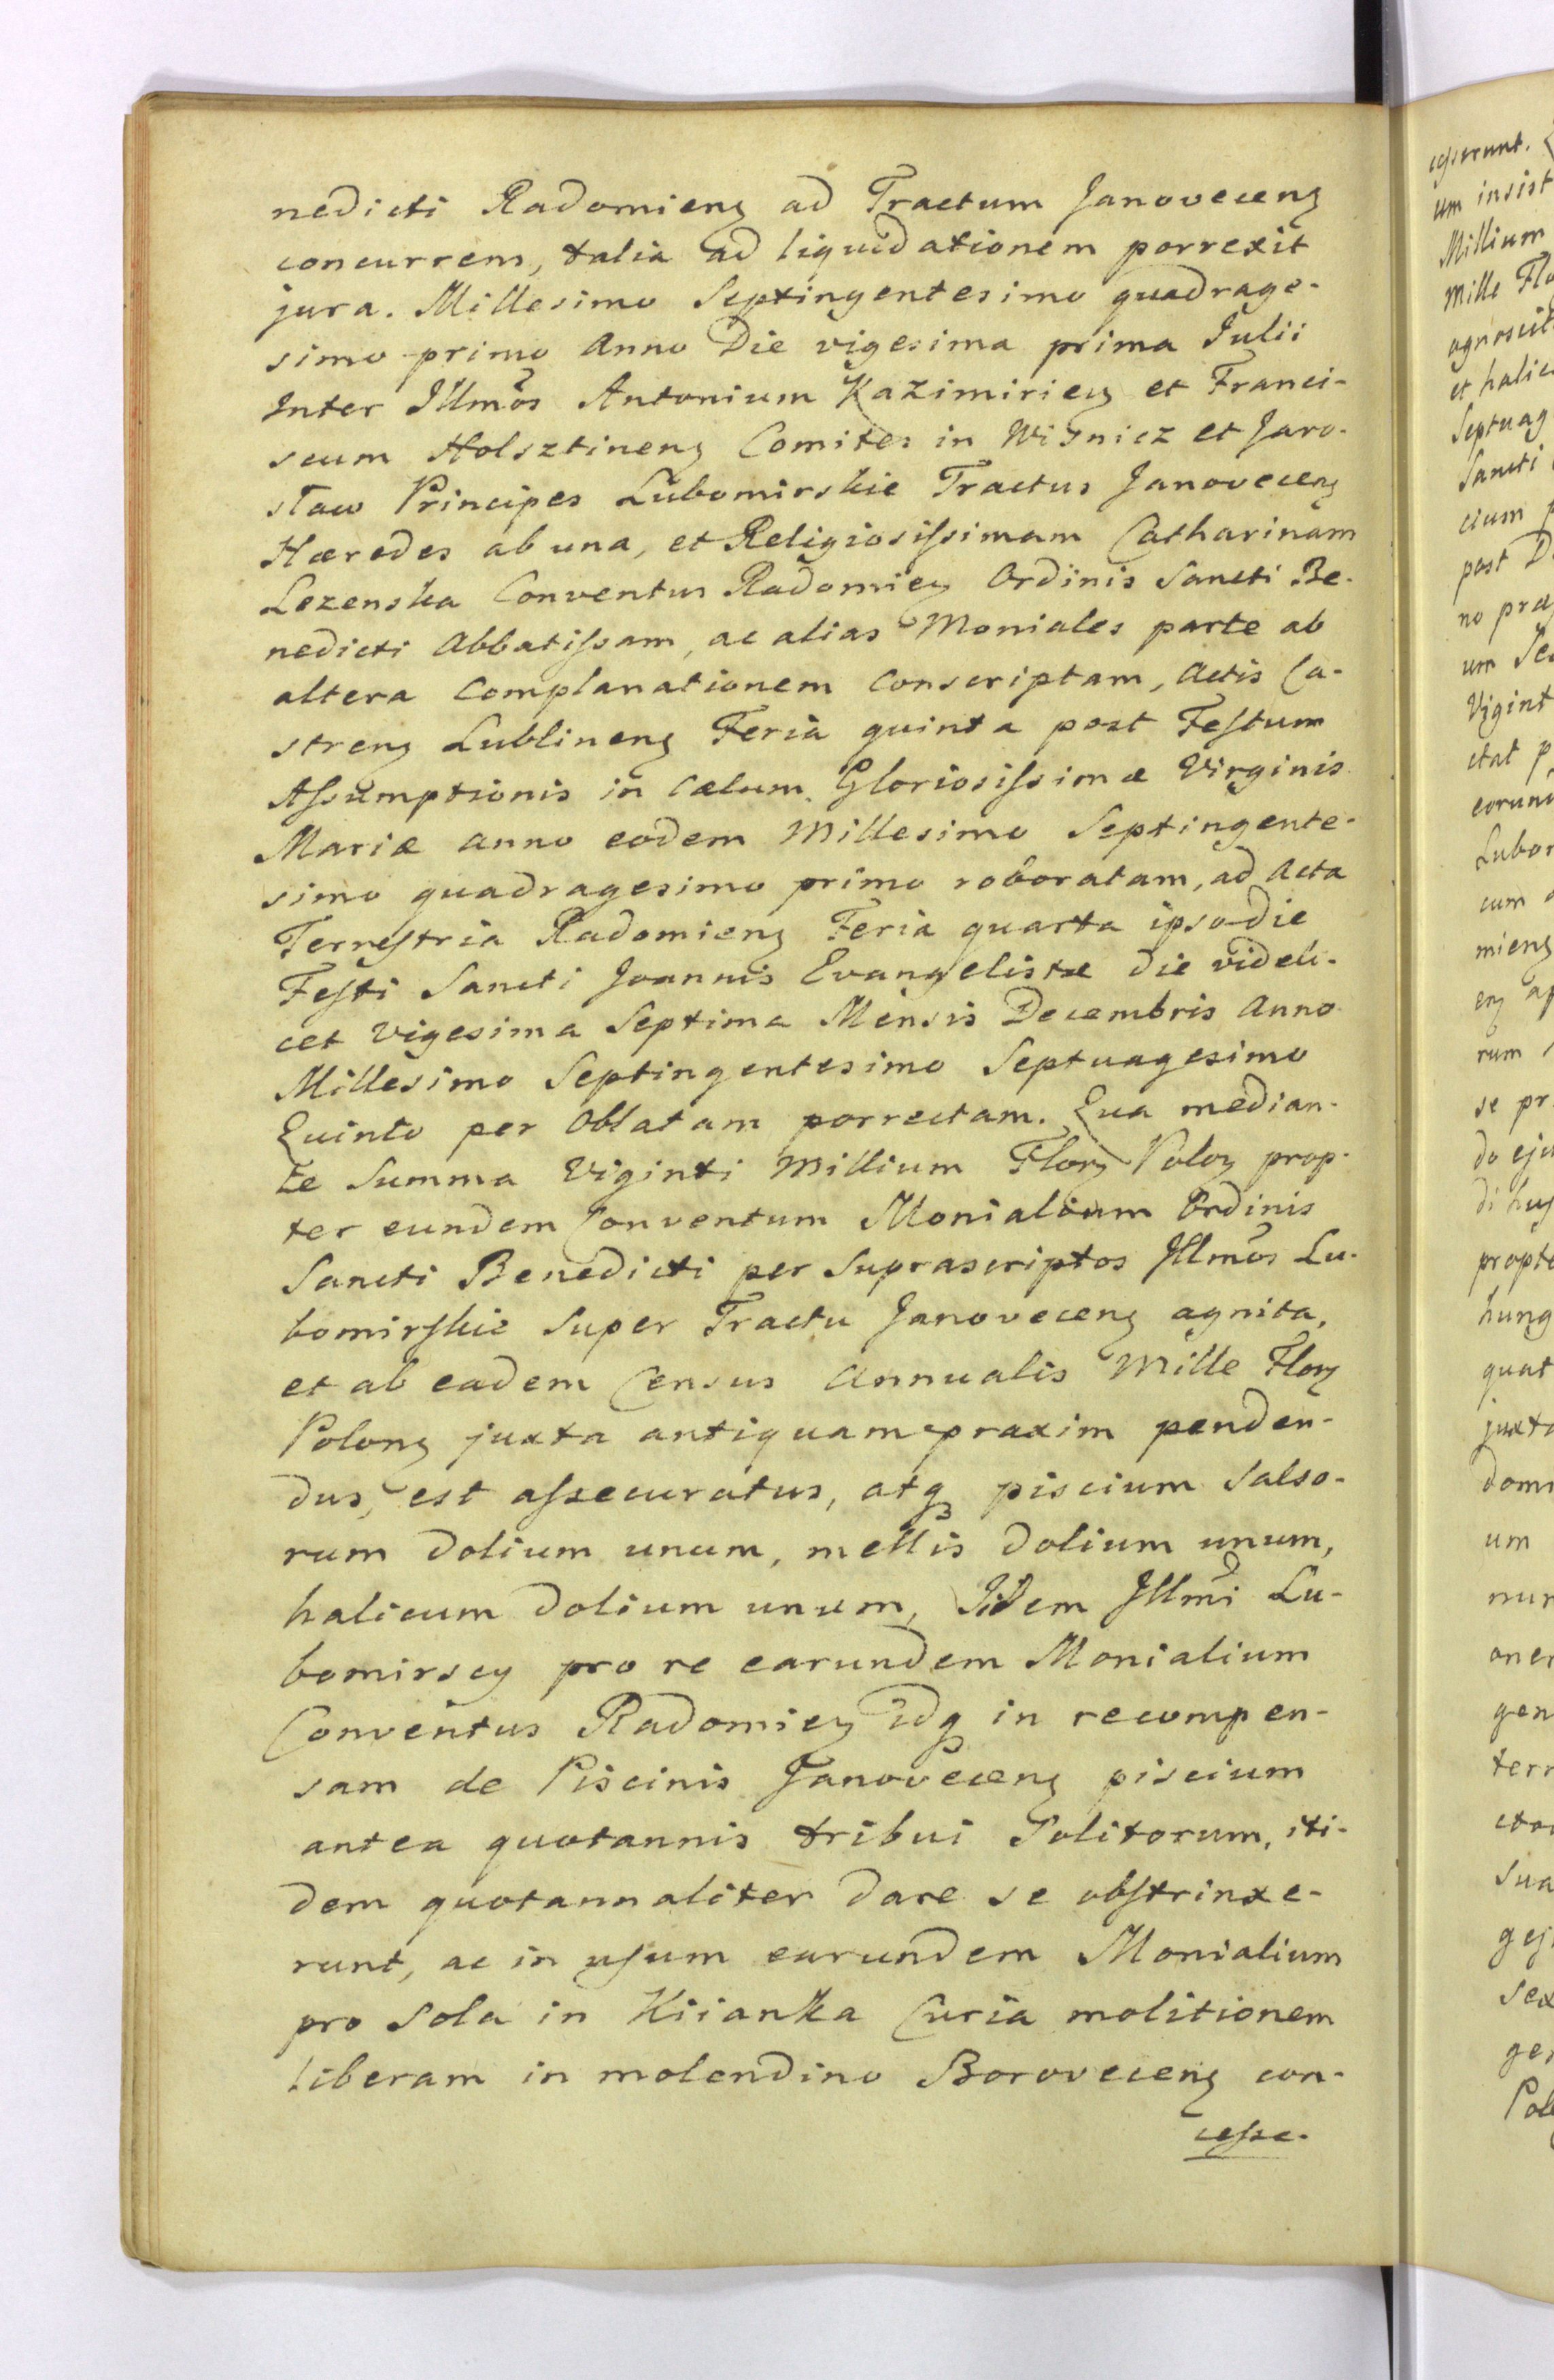 nedicti Radomieng ad Tractum Janoveceng
concurrens, talia ad liquidationem porrexit
jura. Millesimo Septingentesimo quadrage-
simo primo Anno Die vigesima prima Julii
Inter Illmos Antonium Kazimiriey et Franci-
scum Holsztineng Comites in Wisnicz et Jaro-
sław Principes Lubomirskie Tractus Janoveceng
Hæredes ab una, et Religiosissimam Catharinam
Lezenska Conventus Radomiey Ordinis Sancti Be-
nedicti Abbatissam, ac alias Moniales parte ab
altera Complanationem Conscriptam, Actis Ca-
streng Lublineng Feria quinta post Festum
Assumptionis in Cælum Gloriosissimæ Virginis
Mariæ anno eodem Millesimo Septingente-
simo quadragesimo primo roboratam, ad Acta
Terrestria Radomieng Feria quarta ipso die
Festi Sancti Joannis Evangelistæ die videli-
cet vigesima Septima Mensis Decembris Anno
Millesimo Septingentesimo Septuagesimo
Quinto per Oblatam porrectam. Qua median-
te Summa Viginti Millium Florz Poloz prop-
ter eundem Conventum Monialium Ordinis
Sancti Benedicti per Suprascriptos Illmos Lu-
bomirskie Super Tractu Janoveceng agnita,
et ab eadem Census Annualis Mille Florz
Polong juxta antiquam praxim penden-
dus, est assecuratus, atq piscium Salso-
rum Dolium unum, mellis Dolium unum,
halicum Dolium unum, Iidem Illmi Lu-
bomirscy pro re earundem Monialium
Conventus Radomiey idq in recompen-
sam de Piscinis Janoveceng piscium
antea quotannis tribui Solitorum, iti-
dem quotannaliter dare se obstrinxe-
runt, ac in usum earundem Monialium
pro Sola in Kiianka Curia molitionem
liberam in molendino Boroveceng con-
cesse-